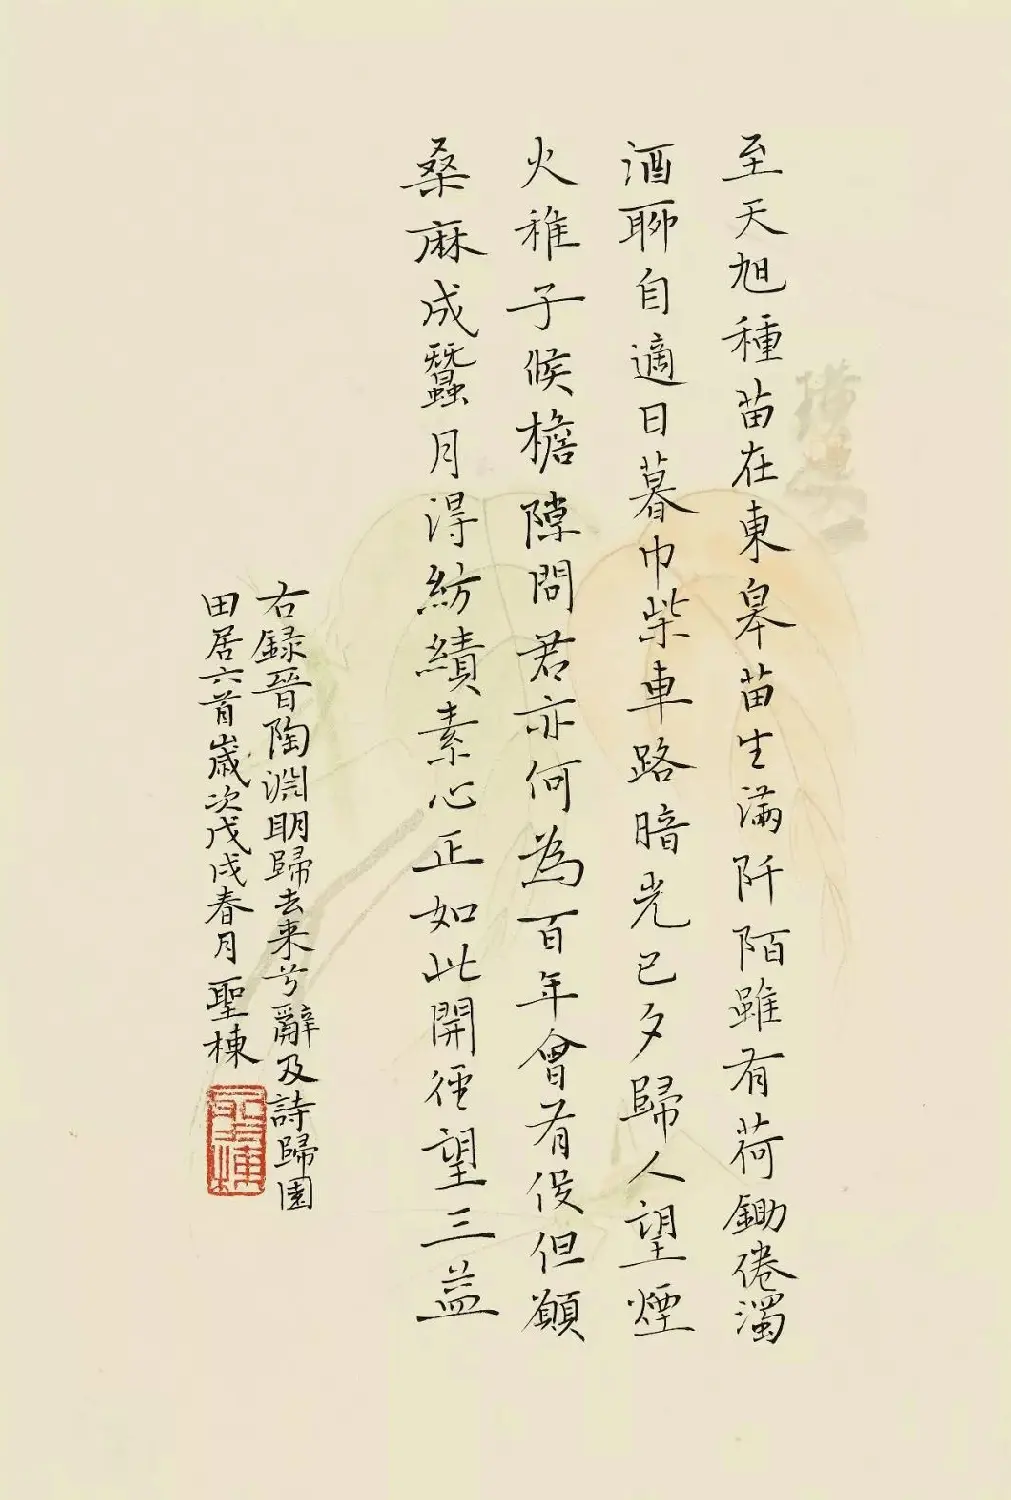 至天旭種苗在東皋苗生滿阡陌雖有荷鋤倦濁
酒聊自適日暮巾柴車路暗光已夕歸人望煙
火稚子候檐隙問君亦何為百年會有役但願
桑麻成蠶月得紡績素心正如此開徑望三益
右録晉陶淵明歸去来兮辭及詩歸園
田居六首歲次戊戌春月聖棟